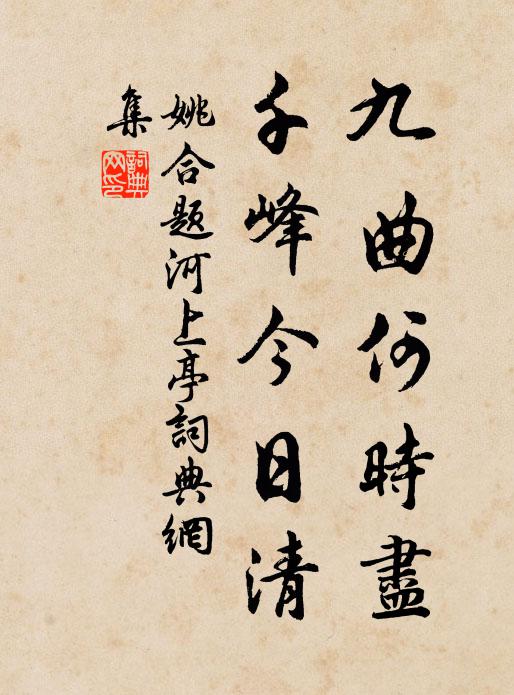 九曲何時盡
千峰今日清
姚合題河上亭詞典網
集
詞典
网印